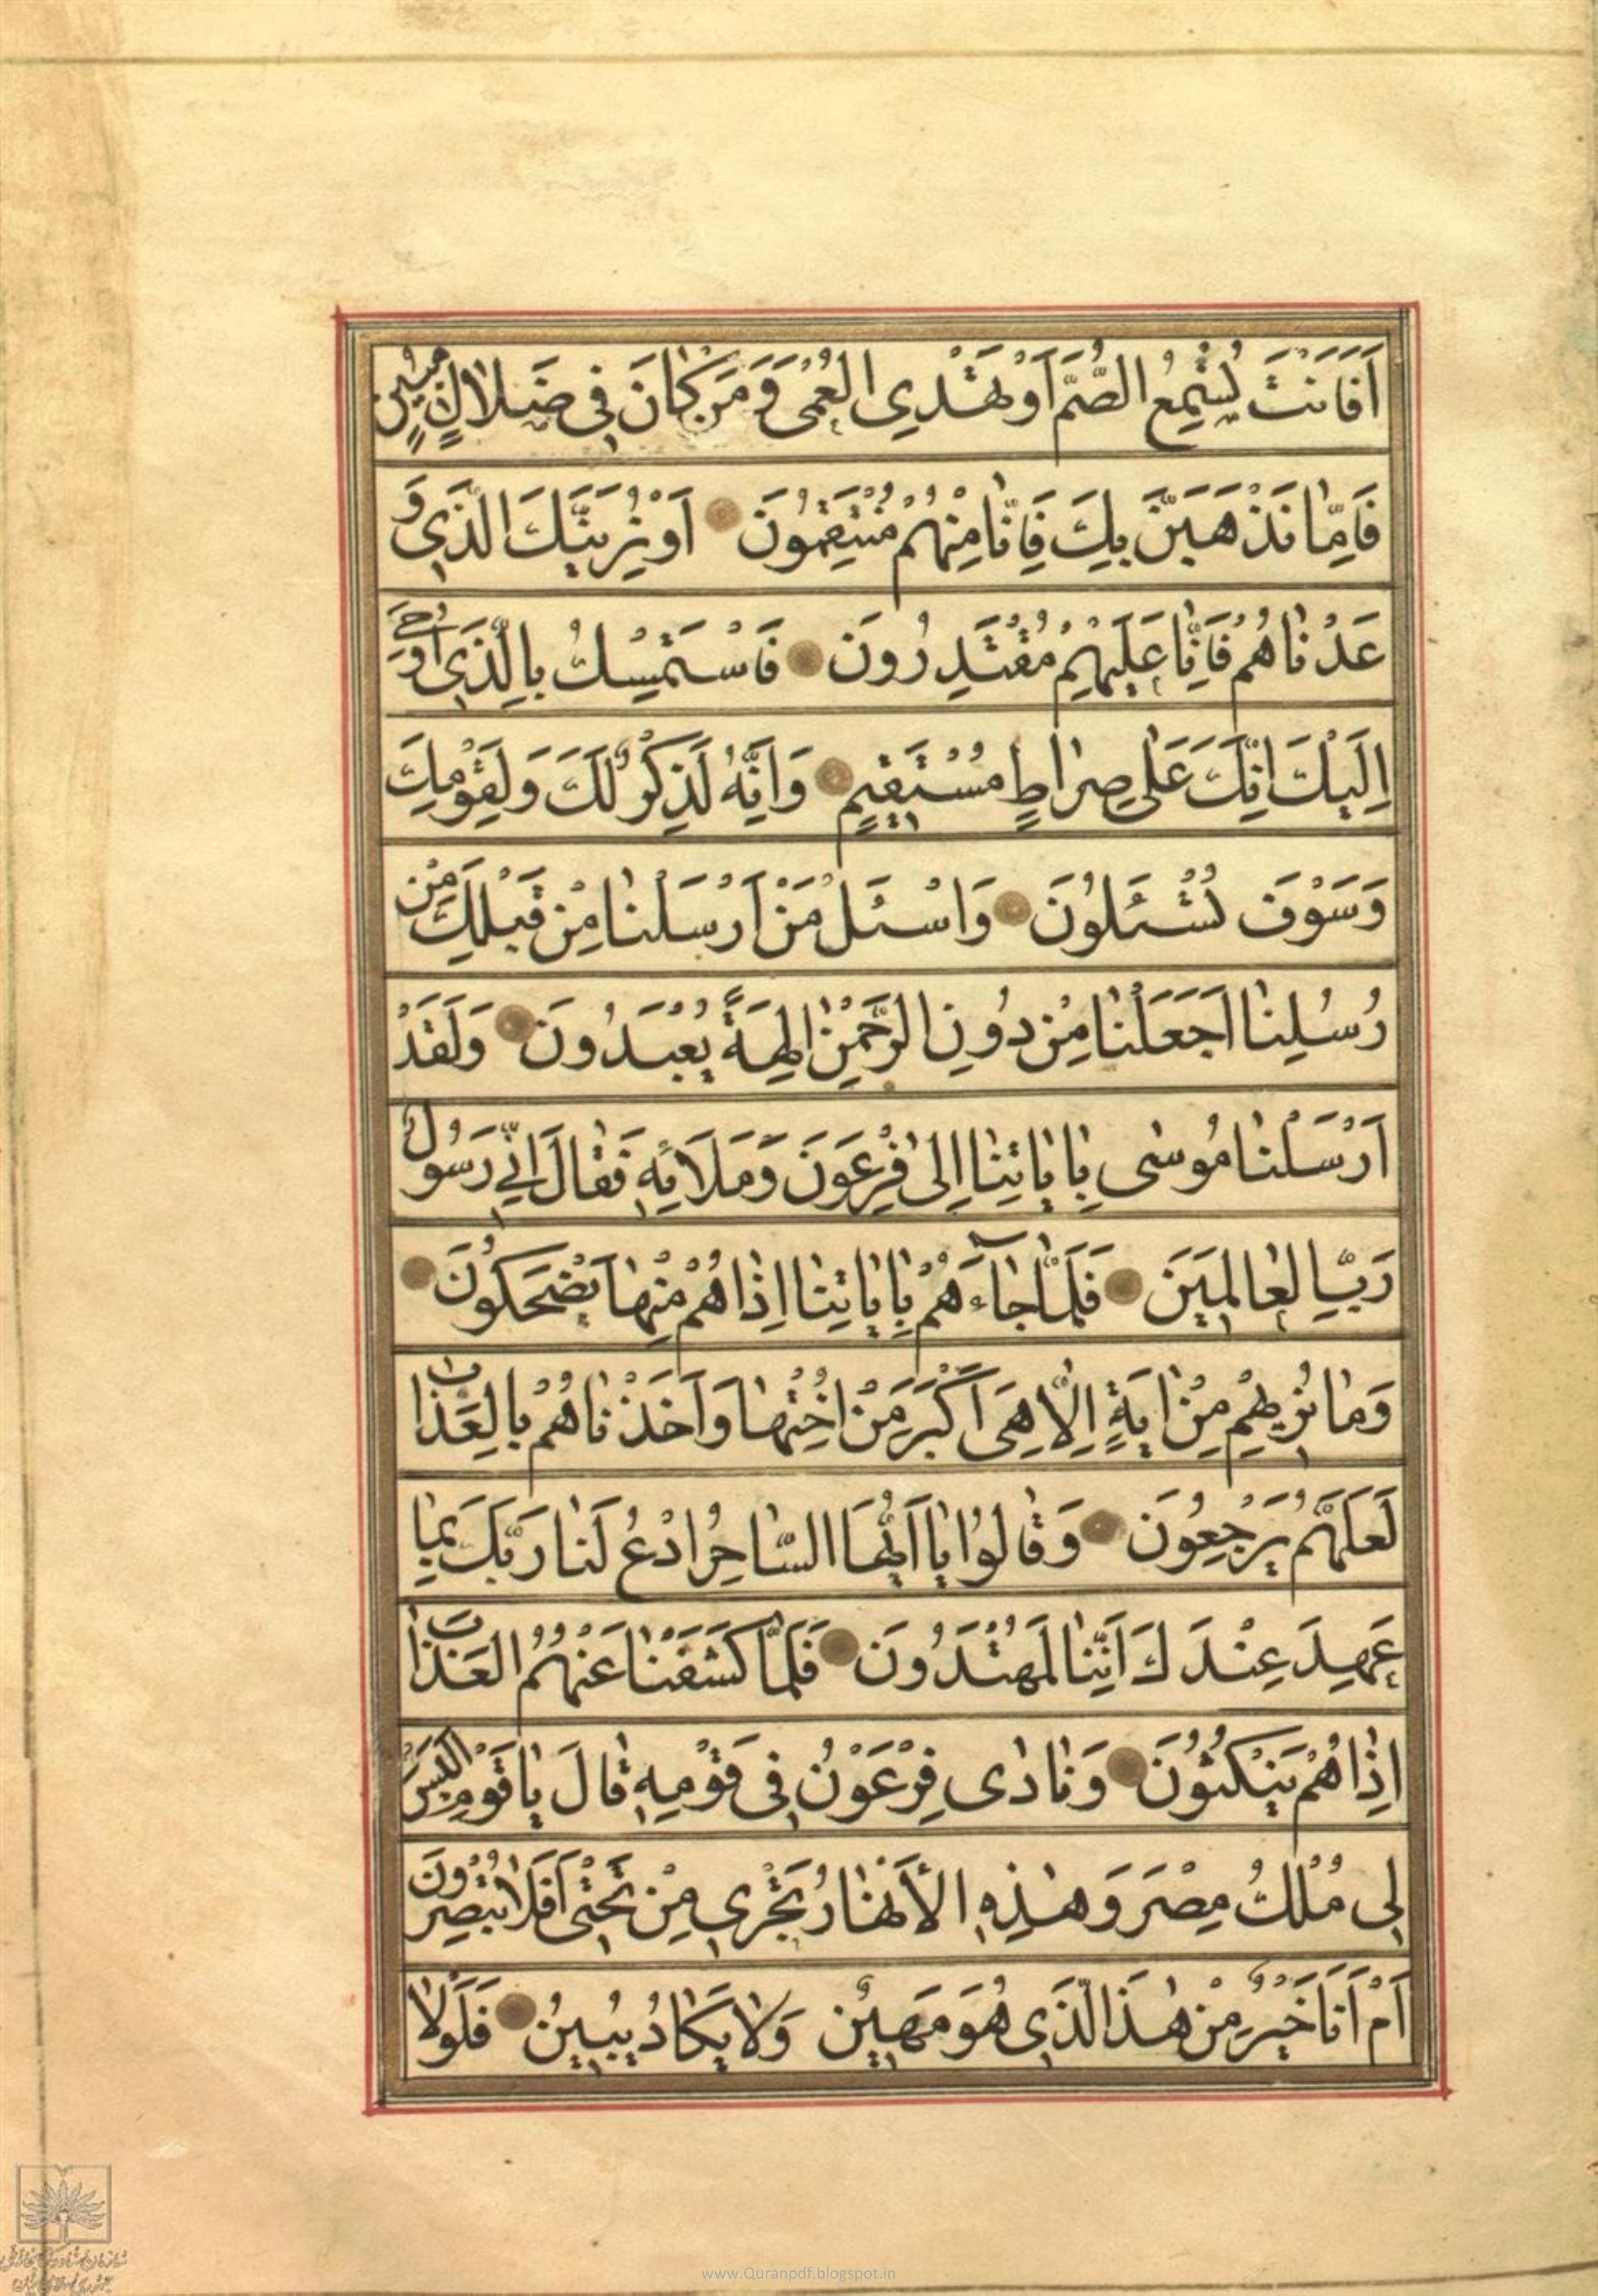 اَفَاَنْتَ تُسْمِعُ الصُّمَّ اَوْ تَهْدِي الْعُمْىَ وَ مَنْ كَانَ فِي ضَلَالٍ مُبِينٍ
فَاِمَّا نَذْهَبَنَّ بِكَ فَاِنَّا مِنْهُمْ مُنْتَقِمُونَ اَوْ نُرِيَنَّكَ الَّذِي وَ
عَدْنَاهُمْ فَاِنَّا عَلَيْهِمْ مُقْتَدِرُونَ فَاسْتَمْسِكْ بِالَّذِي اُوحِيَ
اِلَيْكَ اِنَّكَ عَلَى صِرَاطٍ مُسْتَقِيمٍ وَاِنَّهُ لَذِكْرٌ لَكَ وَلِقَوْمِكَ
وَسَوْفَ تُسْئَلُونَ وَاسْئَلْ مَنْ اَرْسَلْنَا مِنْ قَبْلِكَ مِنْ
رُسُلِنَا اَجَعَلْنَا مِنْ دُونِ الرَّحْمٰنِ اٰلِهَةً يُعْبَدُونَ وَلَقَدْ
اَرْسَلْنَا مُوسٰى بِاٰيَاتِنَا اِلٰى فِرْعَوْنَ وَمَلَائِهِ فَقَالَ اِنِّي رَسُولُ
رَبِّ الْعَالَمِينَ فَلَمَّا جَاءَهُمْ بِاٰيَاتِنَا اِذَا هُمْ مِنْهَا يَضْحَكُونَ
وَمَا نُرِيهِمْ مِنْ اٰيَةٍ اِلَّا هِىَ اَكْبَرُ مِنْ اُخْتِهَا وَاَخَذْنَاهُمْ بِالْعَذَابِ
لَعَلَّهُمْ يَرْجِعُونَ وَقَالُوا يَا اَيُّهَا السَّاحِرُ ادْعُ لَنَا رَبَّكَ بِمَا
عَهِدَ عِنْدَكَ اِنَّنَا لَمُهْتَدُونَ فَلَمَّا كَشَفْنَا عَنْهُمُ الْعَذَابَ
اِذَا هُمْ يَنْكُثُونَ وَنَادٰى فِرْعَوْنُ فِي قَوْمِهِ قَالَ يَا قَوْمِ اَلَيْسَ
لِي مُلْكُ مِصْرَ وَهٰذِهِ الْأَنْهَارُ تَجْرِي مِنْ تَحْتِي اَفَلَا تُبْصِرُونَ
اَمْ اَنَا خَيْرٌ مِنْ هٰذَا الَّذِي هُوَ مَهِينٌ وَلَا يَكَادُ يُبِينُ فَلَوْلَا
www.Quranpdf.blogspot.in